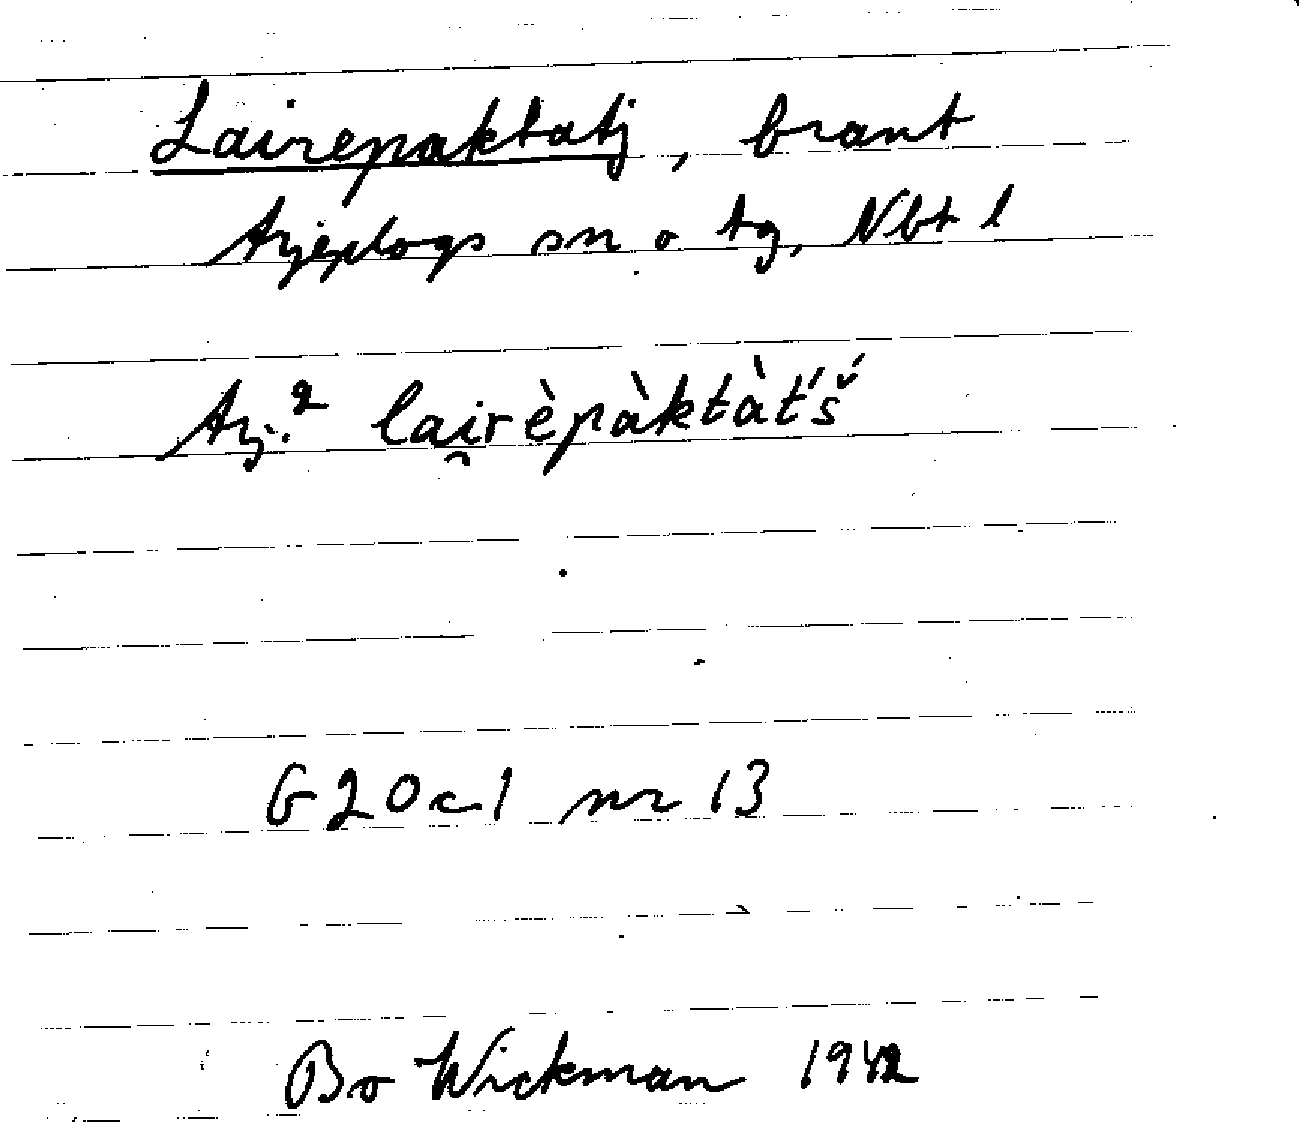 Lairepaktatj, brant
Arjeplogs sn o tg, Nbt l
Arj.2 lai̯rèpàktàt́š́
G20c1 nr 13
Bo Wickman 1942